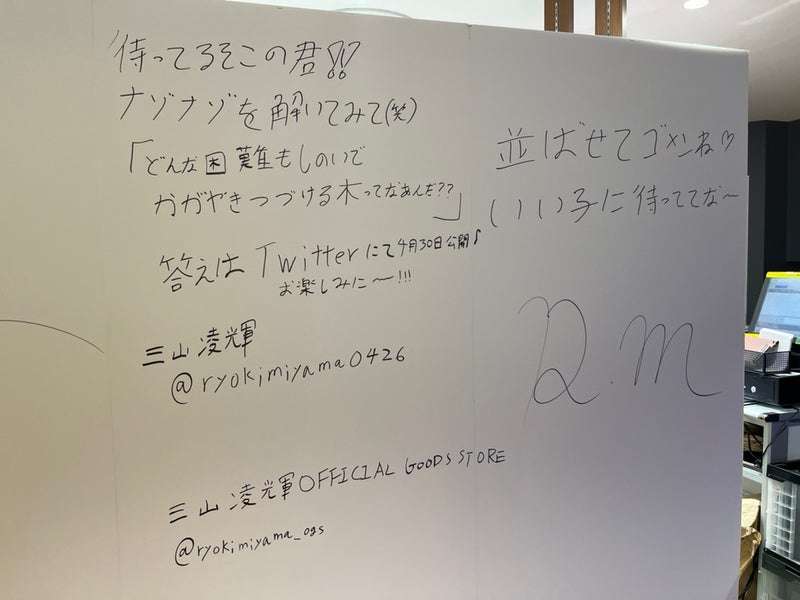 待ってるそこの君!!
ナゾナゾを解いてみて(笑)
「どんな困難もしのいで
かがやきつづける木ってなあんだ??」
答えはTwitterにて4月30日公開♪
お楽しみに〜!!!
三山凌輝
@ryokimiyama0426
三山凌輝OFFICIAL GOODS STORE
@ryokimiyama_ogs
並ばせてゴメンね♡
いい子に待っててな〜
R.M